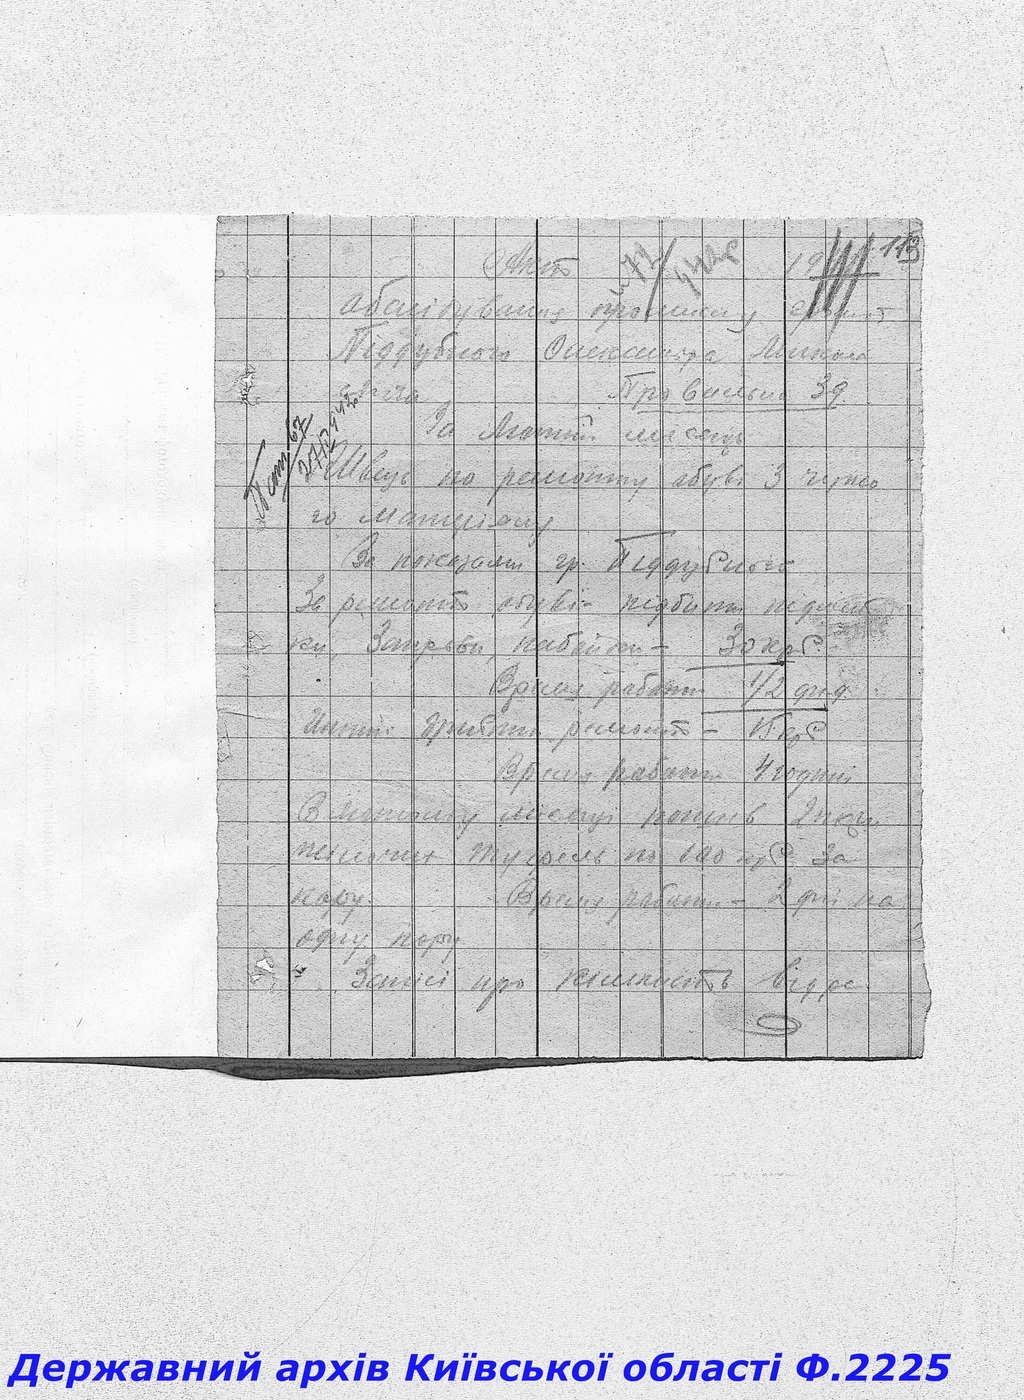 113
Акт
обслідування промислу
Піддубного Олександра Микола
євича Провальна 39
За Лютий місяць
Швець по ремонту обуві з чужо
го матеріялу
За показами гр. Піддубного
За ремонт обуві - підбити підмет
ки, Запряби, набойки - 30 крб.
Время работи 1/2 дня
Инший дрібний ремонт - 15 крб
Время работи 4 годині
В лютому місяці пошив 2 пари
жіночих туфель по 100 крб за
пару. Время работи - 2 дні на
одну пару
Записі про кількість відре
Державний архів Київської області Ф.2225